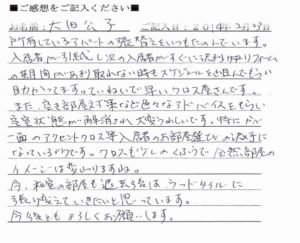 ■ご感想をご記入ください■
お名前: 大田公子 ご記入日: 2014年2月23日
所有しているアパートの張替えをいつもたのんでいます。
入居者が引越し、次の入居者がすぐに決まりリフォーム
の期間があまり取れない時もスケジュールを組んでもらい
助かってます。ていねいで早いクロス屋さんです。
また、空き部屋対策など色々なアドバイスをもらい
空室状態が解消され大変うれしいです。特にかべ
一面のアクセントクロス等入居者のお部屋選びの決手に
なっているようです。クロスも少しのくふうで全然部屋の
イメージは変わりますね。
今、和室の部屋も退去後は、フロアタイルに
張り替えていきたいと思っています。
今後ともよろしくお願いします。